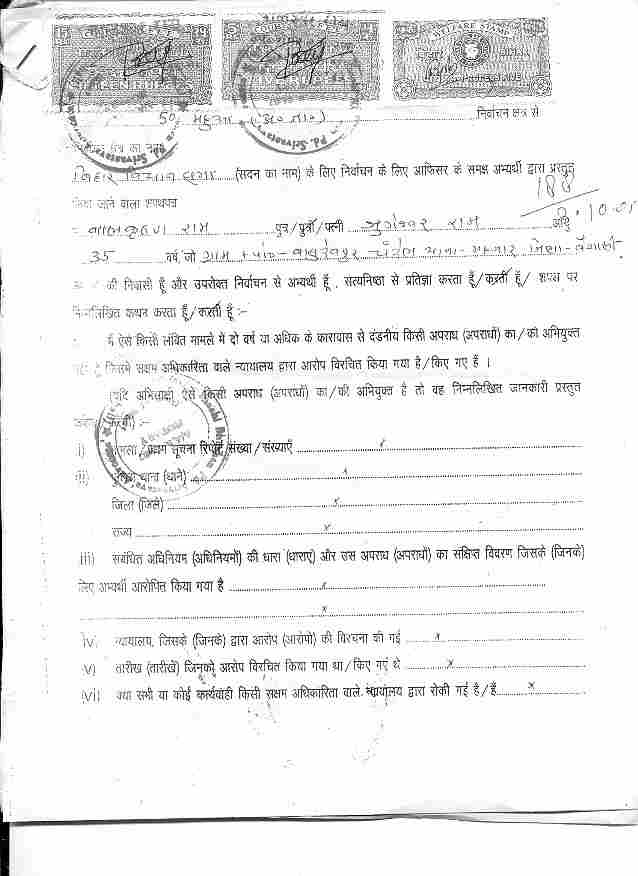 WELFARE STAMP
50 महुआ (अ० जा०) निर्वाचन क्षेत्र से
क्षेत्र का नाम
बिहार विधान सभा (सदन का नाम) के लिए निर्वाचन के लिए आफिसर के समक्ष अभ्यर्थी द्वारा प्रस्तुत
किया जाने वाला शपथपत्र
बालकृष्ण राम पुत्र/पुत्री/पत्नी जुगेश्वर राम आयु
35 वर्ष, जो ग्राम
की निवासी हूँ और उपरोक्त निर्वाचन से अभ्यर्थी हूँ, सत्यनिष्ठा से प्रतिज्ञा करता हूँ/करती हूँ/ शपथ पर
निम्नलिखित कथन करता हूँ/करती हूँ :-
मैं ऐसे किसी लंबित मामले में दो वर्ष या अधिक के कारावास से दंडनीय किसी अपराध (अपराधों) का/की अभियुक्त
हूँ जिसमें सक्षम अधिकारिता वाले न्यायालय द्वारा आरोप विरचित किया गया है/किए गए हैं ।
(यदि अभिसाक्षी ऐसे किसी अपराध (अपराधों) का/की अभियुक्त है तो वह निम्नलिखित जानकारी प्रस्तुत
करेगी) :-
i) प्रथम सूचना रिपोर्ट संख्या/संख्याएँ x
(ii) थाना (थाने) x
जिला (जिले) x
राज्य x
(iii) संबंधित अधिनियम (अधिनियमों) की धारा (धाराएं) और उस अपराध (अपराधों) का संक्षिप्त विवरण जिसके (जिनके)
लिए अभ्यर्थी आरोपित किया गया है x
x
iv) न्यायालय, जिसके (जिनके) द्वारा आरोप (आरोपों) की विरचना की गई x
v) तारीख (तारीखें) जिनको आरोप विरचित किया गया था/किए गए थे x
(vi) क्या सभी या कोई कार्यवाही किसी सक्षम अधिकारिता वाले न्यायालय द्वारा रोकी गई है/हैं x